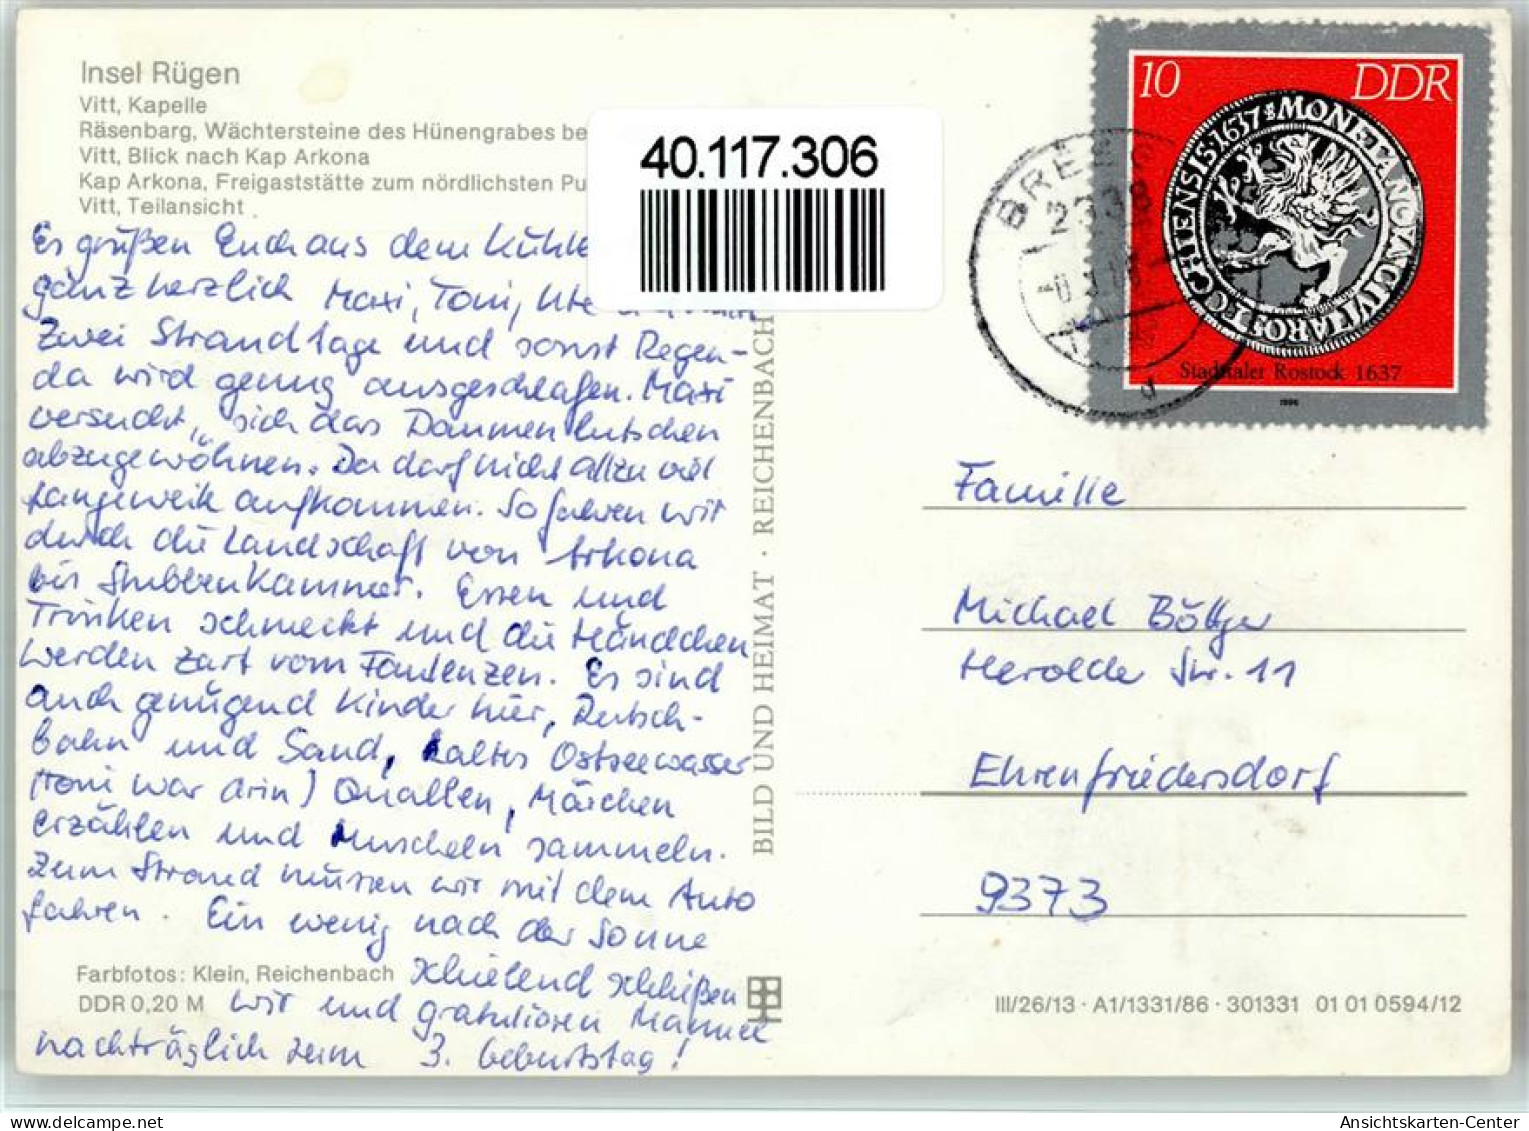 Insel Rügen
Vitt, Kapelle
Räsenbarg, Wächtersteine des Hünengrabes be
Vitt, Blick nach Kap Arkona
Kap Arkona, Freigaststätte zum nördlichsten Pu
Vitt, Teilansicht
40.117.306
Es grüßen Euch aus dem Kühle
ganz herzlich Maxi, Toni, Ute
Zwei Strandtage und sonst Regen-
da wird genug ausgeschlafen. Maxi
versucht, sich das Daumenlutschen
abzugewöhnen. Da darf nicht allzu viel
Langeweile aufkommen. So fahren wir
durch die Landschaft von Arkona
bis Stubbenkammer. Essen und
Trinken schmeckt und die Händchen
werden zart vom Faulenzen. Es sind
auch genügend Kinder hier, Rutsch-
bahn und Sand, kaltes Ostseewasser
(Toni war drin) Quallen, Märchen
erzählen und Muscheln sammeln.
Zum Strand müssen wir mit dem Auto
fahren. Ein wenig nach der Sonne
schielend schließen
wir und gratulieren Manuel
nachträglich zum 3. Geburtstag!
Farbfotos: Klein, Reichenbach
DDR 0,20 M
BILD UND HEIMAT · REICHENBACH
10 DDR
MONETA NOVA CIVITA ROSTOCCHIENSIS 1637
Stadttaler Rostock 1637
1986
BREEGE
2338
Familie
Michael Böttger
Herolder Str. 11
Ehrenfriedersdorf
9373
III/26/13 · A1/1331/86 · 301331 01 01 0594/12
Ansichtskarten-Center